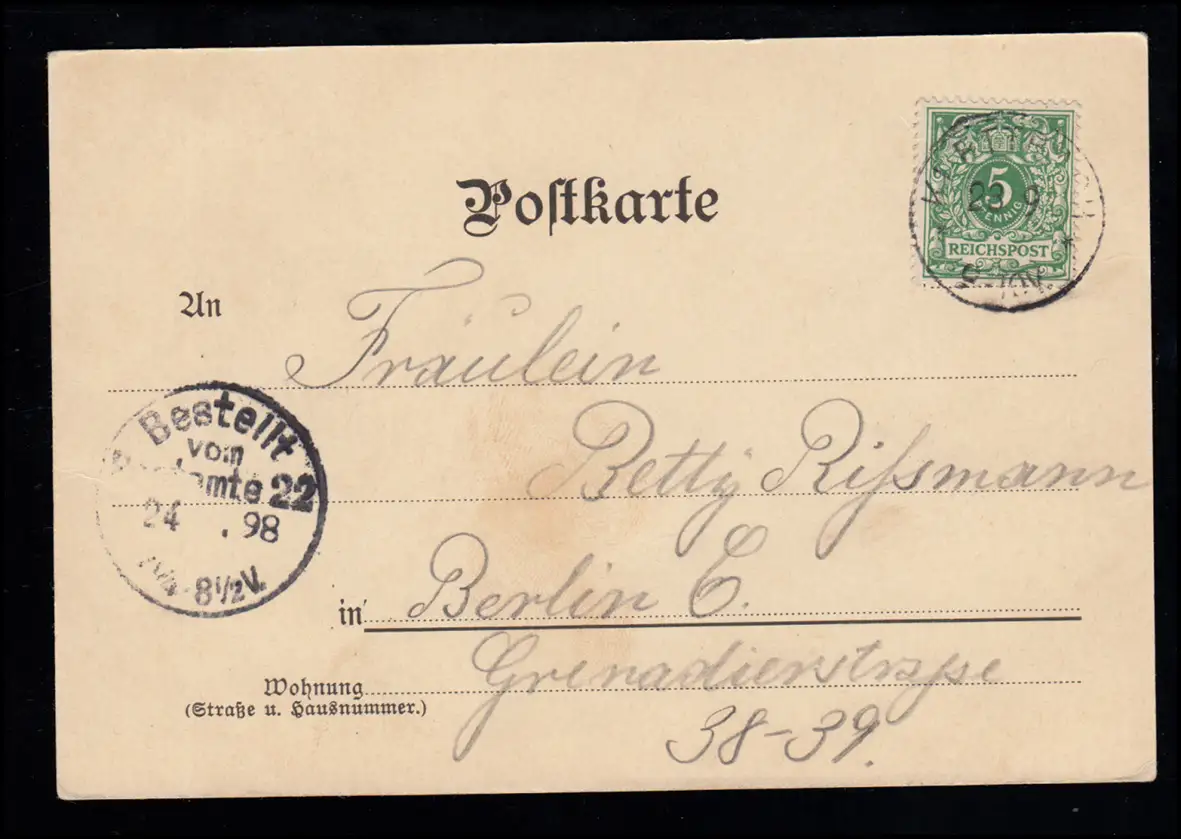 Postkarte
5
PFENNIG
REICHSPOST
23 9
9-10V
An Fräulein
Betty Rißmann
in Berlin C.
Wohnung Grenadierstraße
(Straße u. Hausnummer.)
38-39.
Bestellt
vom
Postamte 22
24 . 98
8½V.